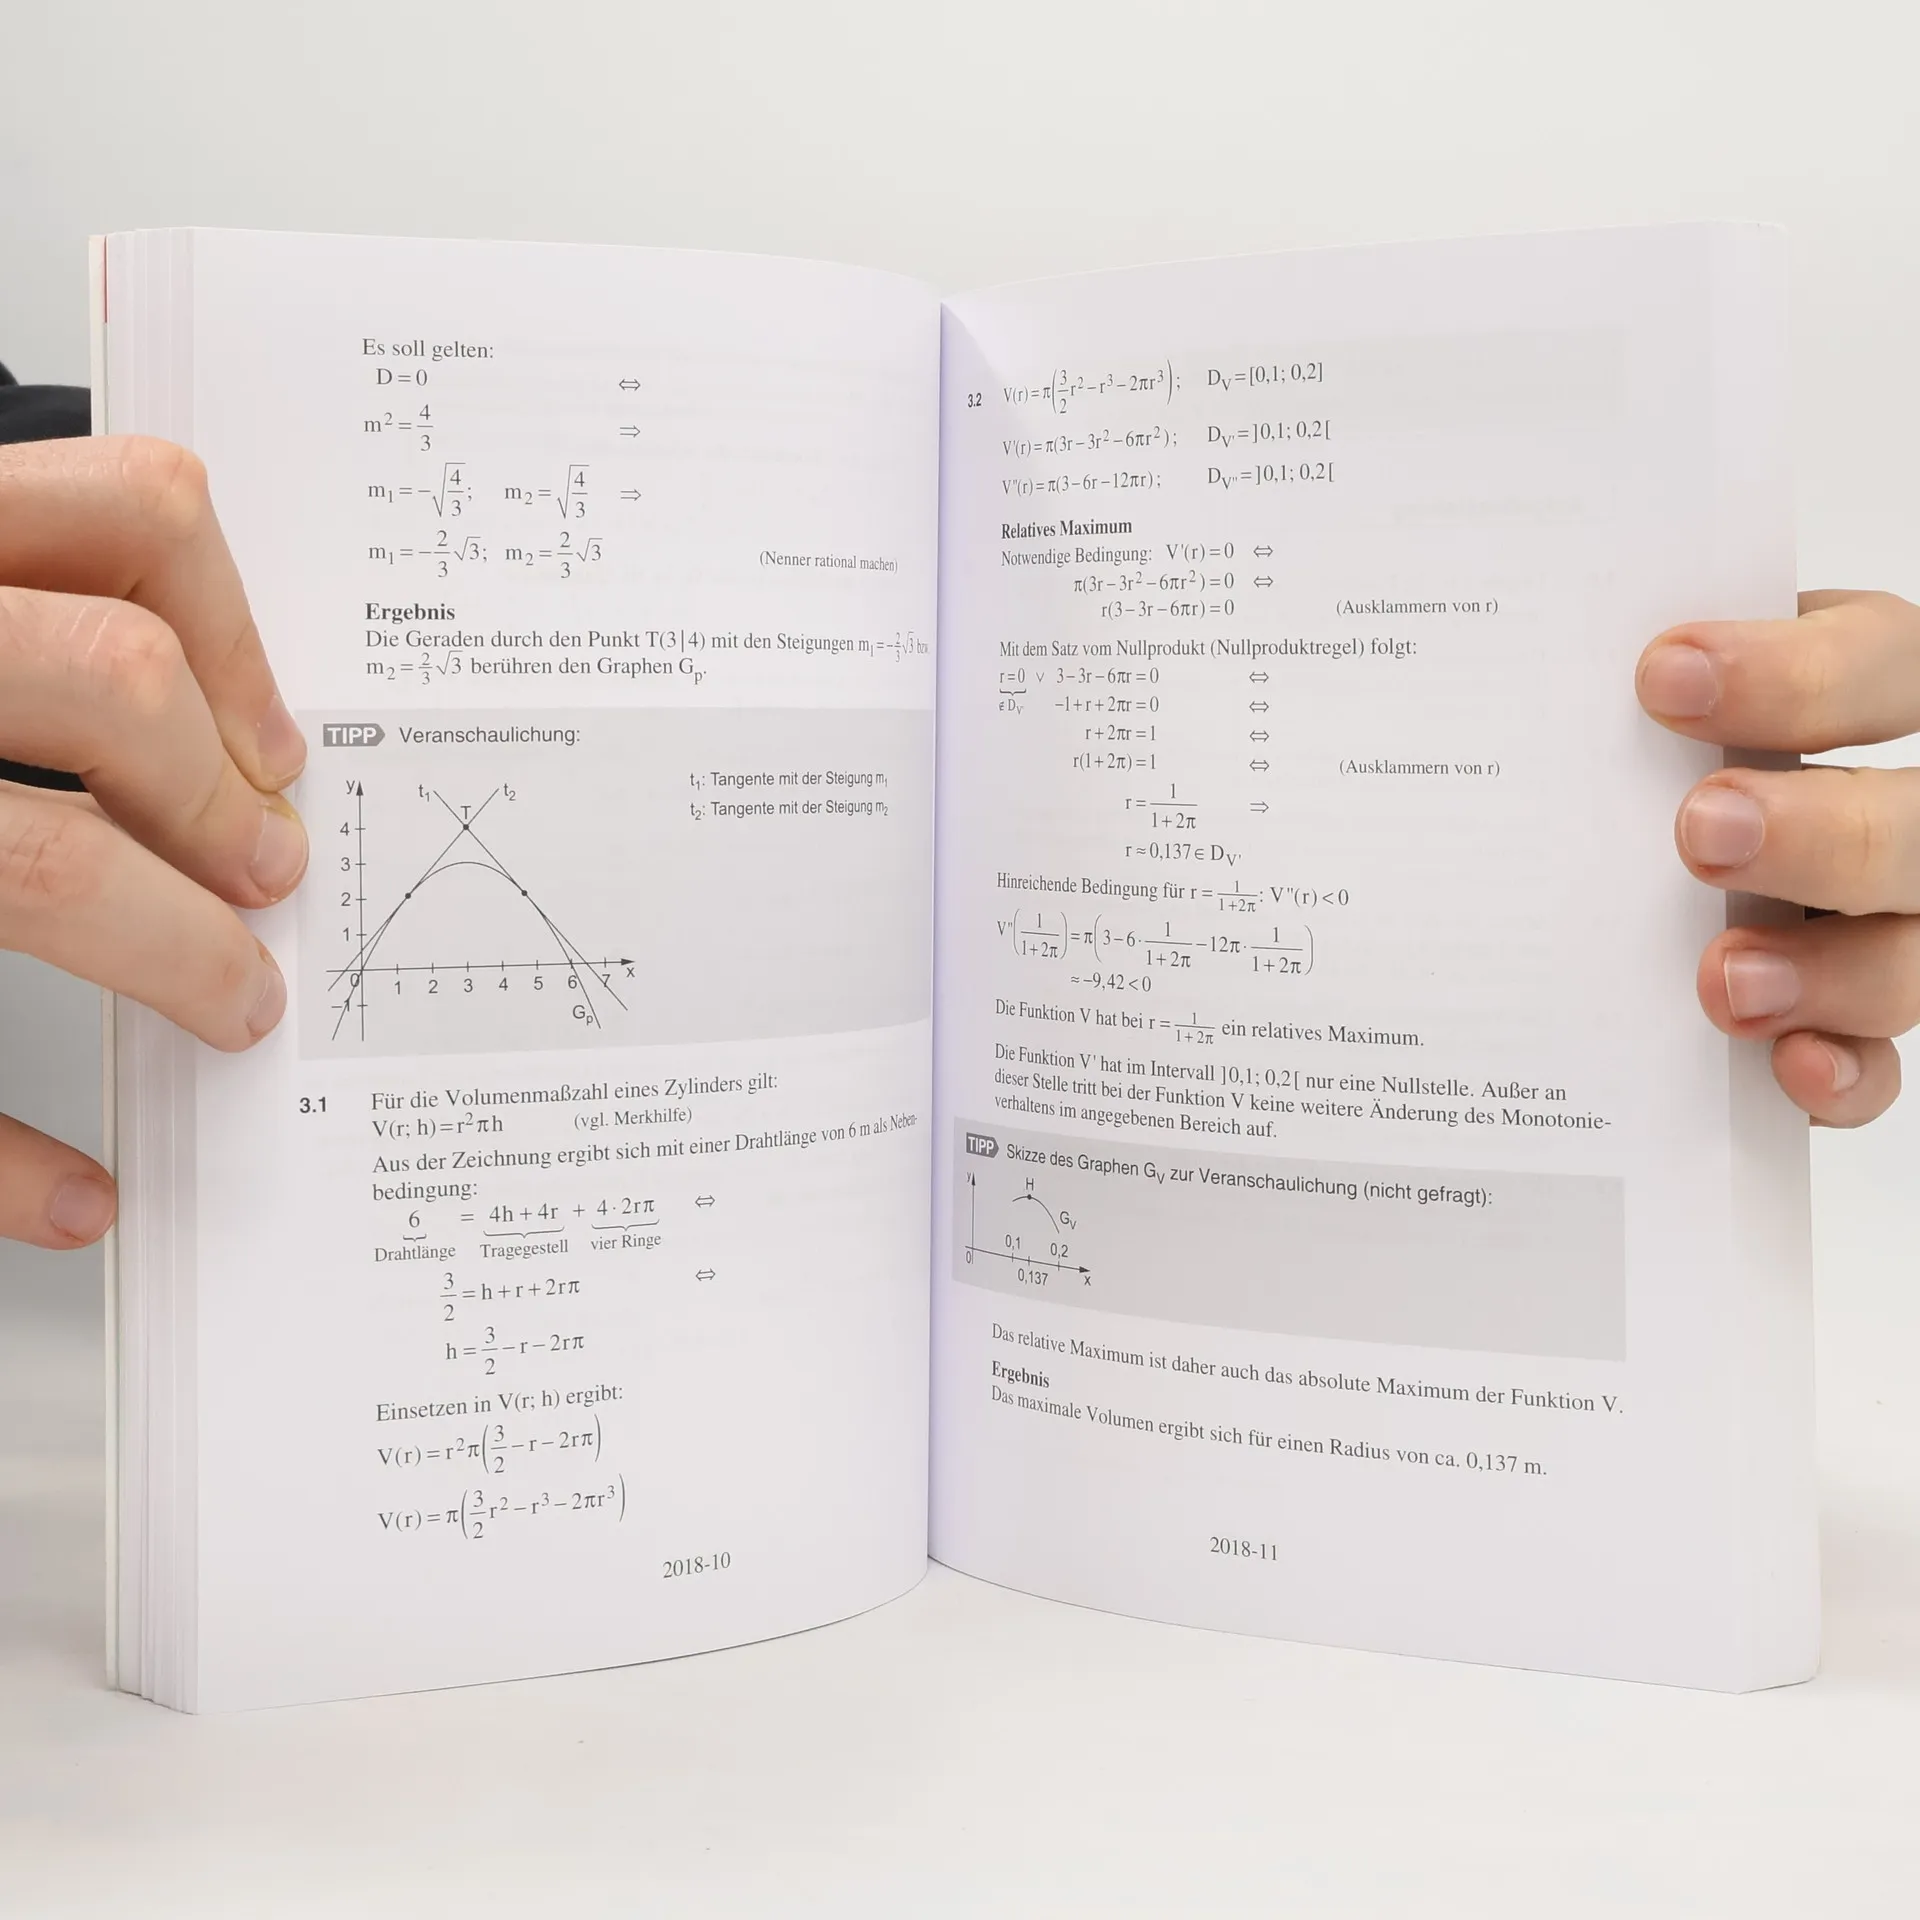 Es soll gelten:
D = 0 ⇔
m² = 4/3 ⇒
m₁ = −√(4/3); m₂ = √(4/3) ⇒
m₁ = −2/3 √3; m₂ = 2/3 √3 (Nenner rational machen)
Ergebnis
Die Geraden durch den Punkt T(3|4) mit den Steigungen m₁ = −2/3 √3 bzw.
m₂ = 2/3 √3 berühren den Graphen Gₚ.
TIPP Veranschaulichung:
t₁: Tangente mit der Steigung m₁
t₂: Tangente mit der Steigung m₂
y t₁ t₂
T
4
3
2
1
0 1 2 3 4 5 6 7 x
−1
Gₚ
3.1 Für die Volumenmaßzahl eines Zylinders gilt:
V(r; h) = r²πh (vgl. Merkhilfe)
Aus der Zeichnung ergibt sich mit einer Drahtlänge von 6 m als Neben-
bedingung:
6 = 4h + 4r + 4 · 2rπ ⇔
Drahtlänge Tragegestell vier Ringe
3/2 = h + r + 2rπ ⇔
h = 3/2 − r − 2rπ
Einsetzen in V(r; h) ergibt:
V(r) = r²π(3/2 − r − 2rπ)
V(r) = π(3/2 r² − r³ − 2πr³)
2018-10
3.2 V(r) = π(3/2 r² − r³ − 2πr³); D_V = [0,1; 0,2]
V'(r) = π(3r − 3r² − 6πr²); D_V' = ]0,1; 0,2[
V''(r) = π(3 − 6r − 12πr); D_V'' = ]0,1; 0,2[
Relatives Maximum
Notwendige Bedingung: V'(r) = 0 ⇔
π(3r − 3r² − 6πr²) = 0 ⇔
r(3 − 3r − 6πr) = 0 (Ausklammern von r)
Mit dem Satz vom Nullprodukt (Nullproduktregel) folgt:
r = 0 ∨ 3 − 3r − 6πr = 0 ⇔
∉ D_V' −1 + r + 2πr = 0 ⇔
r + 2πr = 1 ⇔
r(1 + 2π) = 1 ⇔ (Ausklammern von r)
r = 1/(1 + 2π) ⇒
r ≈ 0,137 ∈ D_V'
Hinreichende Bedingung für r = 1/(1+2π): V''(r) < 0
V''(1/(1+2π)) = π(3 − 6 · 1/(1+2π) − 12π · 1/(1+2π))
≈ −9,42 < 0
Die Funktion V hat bei r = 1/(1+2π) ein relatives Maximum.
Die Funktion V' hat im Intervall ]0,1; 0,2[ nur eine Nullstelle. Außer an
dieser Stelle tritt bei der Funktion V keine weitere Änderung des Monotonie-
verhaltens im angegebenen Bereich auf.
TIPP Skizze des Graphen G_V zur Veranschaulichung (nicht gefragt):
y H
G_V
0,1 0,2
0 0,137 x
Das relative Maximum ist daher auch das absolute Maximum der Funktion V.
Ergebnis
Das maximale Volumen ergibt sich für einen Radius von ca. 0,137 m.
2018-11